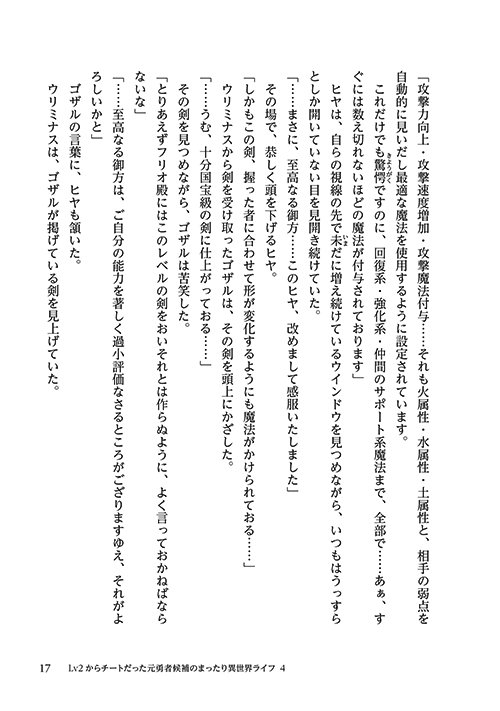 「攻撃力向上・攻撃速度増加・攻撃魔法付与……それも火属性・水属性・土属性と、相手の弱点を
自動的に見いだし最適な魔法を使用するように設定されています。
　これだけでも驚愕ですのに、回復系・強化系・仲間のサポート系魔法まで、全部で……あぁ、す
ぐには数え切れないほどの魔法が付与されております」
　ヒヤは、自らの視線の先で未だに増え続けているウインドウを見つめながら、いつもはうっすら
としか開いていない目を見開き続けていた。
「……まさに、至高なる御方……このヒヤ、改めまして感服いたしました」
　その場で、恭しく頭を下げるヒヤ。
「しかもこの剣、握った者に合わせて形が変化するようにも魔法がかけられておる……」
　ウリミナスから剣を受け取ったゴザルは、その剣を頭上にかざした。
「……うむ、十分国宝級の剣に仕上がっておる……」
　その剣を見つめながら、ゴザルは苦笑した。
「とりあえずフリオ殿にはこのレベルの剣をおいそれとは作らぬように、よく言っておかねばなら
ないな」
「……至高なる御方は、ご自分の能力を著しく過小評価なさるところがござりますゆえ、それがよ
ろしいかと」
　ゴザルの言葉に、ヒヤも頷いた。
　ウリミナスは、ゴザルが掲げている剣を見上げていた。
17　Lv2からチートだった元勇者候補のまったり異世界ライフ 4